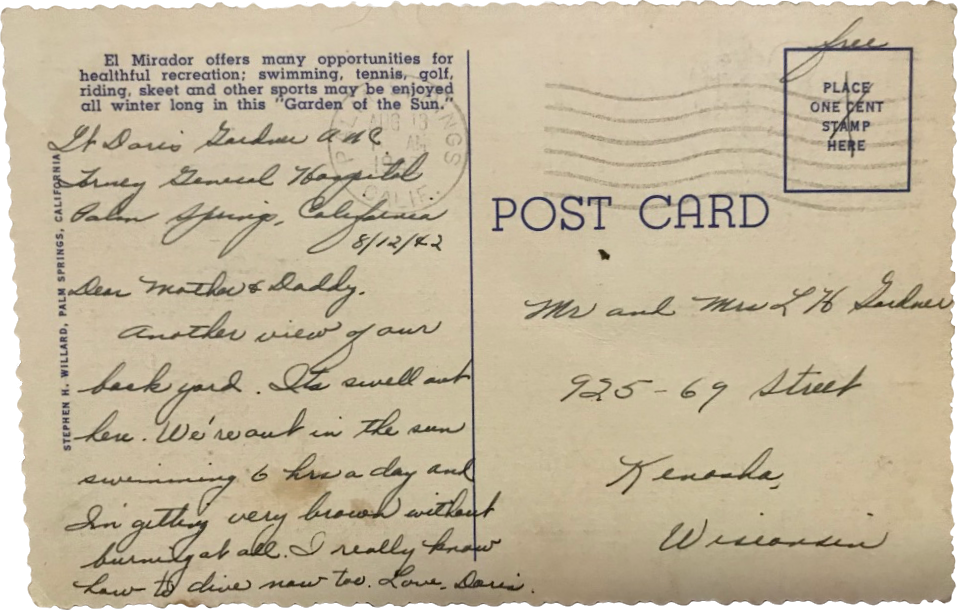 El Mirador offers many opportunities for
healthful recreation; swimming, tennis, golf,
riding, skeet and other sports may be enjoyed
all winter long in this "Garden of the Sun."
Lt Doris Gardner A.N.C.
Torney General Hospital
Palm Springs, California
8/12/42
Dear Mother & Daddy,
Another view of our
back yard. It's swell out
here. We're out in the sun
swimming 6 hrs a day and
I'm getting very brown without
burning at all. I really know
how to dive now too. Love, Doris.
STEPHEN H. WILLARD, PALM SPRINGS, CALIFORNIA
AUG 13
AM
CALIF.
free
PLACE
ONE CENT
STAMP
HERE
POST CARD
Mr and Mrs L H Gardner
925-69 Street
Kenosha,
Wisconsin